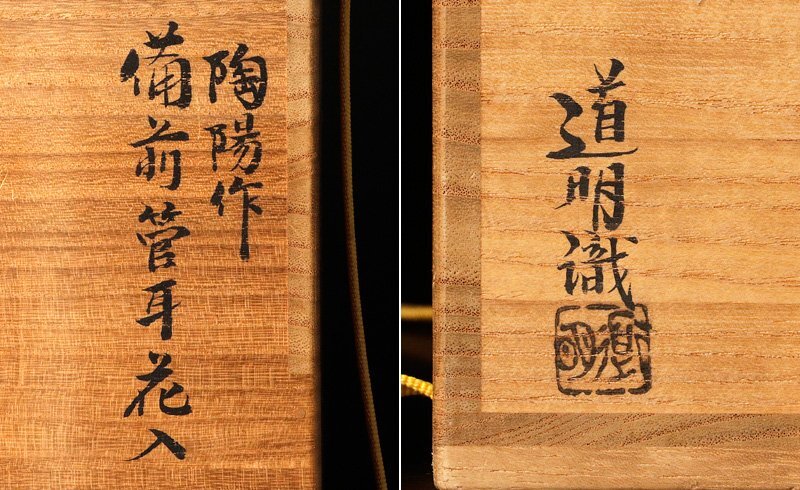 陶陽作
備前管耳花入
道明識